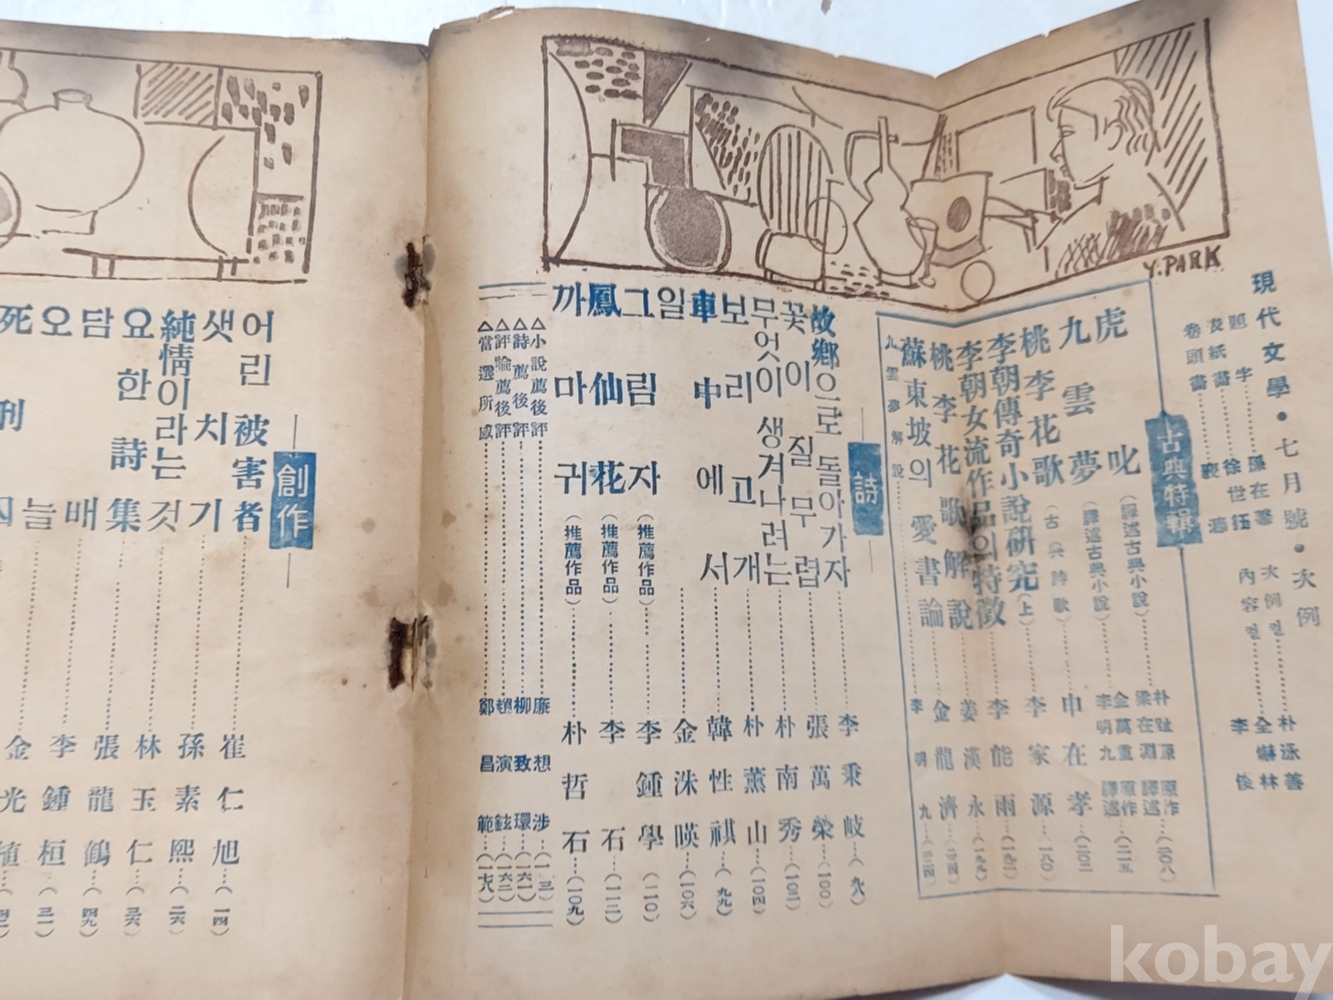 Y. PARK
現代文學 • 七月號 • 次例
題字 孫在馨
表紙畵 徐世鈺
卷頭畵 裵
次例컽 朴泳善
內容컽 李俊
古典特輯
虎叱(譯述古典小說) 朴趾源 原作 梁在淵 譯述 (二〇八)
九雲夢(譯述古典小說) 金萬重 原作 李明九 譯述 (二一五)
桃李花歌(古典詩歌) 申在孝 (二〇二)
李朝傳奇小說硏究(上) 李家源 (一八〇)
李朝女流作品의特徵 李能雨 (一九二)
桃李花歌解說 姜漢永 (一九九)
蘇東坡의愛書論 金龍濟 (二二四)
九雲夢解說 李明九 (二一四)
詩
故鄕으로돌아가자 李秉岐 (九八)
꽃이질무렵 張萬榮 (一〇〇)
무엇이생겨나려는 朴南秀 (一〇二)
보리고개 朴薰山 (一〇四)
車中에서 韓性祺 (九九)
일 金洙暎 (一〇六)
그림자(推薦作品) 李鍾學 (一一〇)
鳳仙花(推薦作品) 李石 (一一二)
까마귀(推薦作品) 朴哲石 (一〇九)
△小說薦後評 廉想涉 (一三)
△詩薦後評 柳致環 (一六一)
△評論薦後評 趙演鉉 (一六二)
△當選所感 鄭昌範 (一七八)
創作
어린被害者 崔仁旭 (一四)
샛치기 孫素熙 (二六)
純情이라는것 林玉仁 (三六)
요한詩集 張龍鶴 (四九)
담배 李鍾桓 (三一)
오늘 金光植
死刊囚
kobay